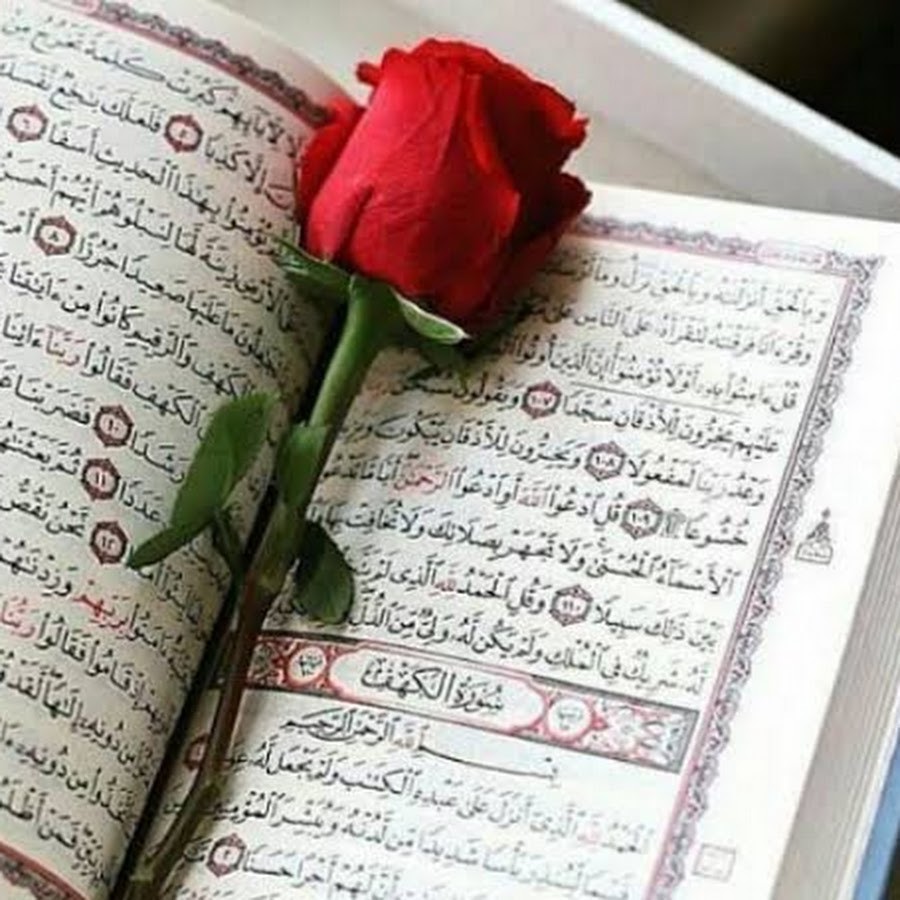 وَبِٱلْحَقِّ أَنزَلْنَٰهُ وَبِٱلْحَقِّ نَزَلَ وَمَآ
وَقُرْءَانًا فَرَقْنَٰهُ لِتَقْرَأَهُۥ عَلَى ٱلنَّاسِ عَلَىٰ
قُلْ ءَامِنُوا۟ بِهِۦٓ أَوْ لَا تُؤْمِنُوٓا۟ إِنَّ ٱلَّذِينَ أُوتُوا۟
عَلَيْهِمْ يَخِرُّونَ لِلْأَذْقَانِ سُجَّدًا ١٠٧ وَيَقُولُونَ
وَعْدُ رَبِّنَا لَمَفْعُولًا ١٠٨ وَيَخِرُّونَ لِلْأَذْقَانِ يَبْكُونَ
خُشُوعًا ۩ ١٠٩ قُلِ ٱدْعُوا۟ ٱللَّهَ أَوِ ٱدْعُوا۟ ٱلرَّحْمَٰنَ أَيًّا مَّا
ٱلْأَسْمَآءُ ٱلْحُسْنَىٰ وَلَا تَجْهَرْ بِصَلَاتِكَ وَلَا تُخَافِتْ بِهَا
بَيْنَ ذَٰلِكَ سَبِيلًا ١١٠ وَقُلِ ٱلْحَمْدُ لِلَّهِ ٱلَّذِى لَمْ
لَّهُۥ شَرِيكٌ فِى ٱلْمُلْكِ وَلَمْ يَكُن لَّهُۥ وَلِىٌّ مِّنَ ٱلذُّلِّ
سُورَةُ ٱلْكَهْفِ
بِسْمِ ٱللَّهِ ٱلرَّحْمَٰنِ ٱلرَّحِيمِ
ٱلْحَمْدُ لِلَّهِ ٱلَّذِىٓ أَنزَلَ عَلَىٰ عَبْدِهِ ٱلْكِتَٰبَ وَلَمْ يَجْعَل لَّهُۥ
قَيِّمًا لِّيُنذِرَ بَأْسًا شَدِيدًا مِّن لَّدُنْهُ وَيُبَشِّرَ ٱلْمُؤْمِنِينَ
أَنَّ لَهُمْ أَجْرًا حَسَنًا ٢
لِءَابَآئِهِمْ كَبُرَتْ كَلِمَةً تَخْرُجُ مِنْ
إِلَّا كَذِبًا ٥ فَلَعَلَّكَ بَٰخِعٌ نَّفْسَكَ
يُؤْمِنُوا۟ بِهَٰذَا ٱلْحَدِيثِ أَسَفًا ٦
ٱلْأَرْضِ زِينَةً لَّهَا لِنَبْلُوَهُمْ أَيُّهُمْ أَحْسَنُ
لَجَٰعِلُونَ مَا عَلَيْهَا صَعِيدًا جُرُزًا ٨ أَمْ
ٱلْكَهْفِ وَٱلرَّقِيمِ كَانُوا۟ مِنْ ءَايَٰتِنَا
ٱلْكَهْفِ فَقَالُوا۟ رَبَّنَآ ءَاتِنَا
رَشَدًا ١٠ فَضَرَبْنَا
عَدَدًا ١١ ثُمَّ بَعَثْنَٰهُمْ
١٢ نَّحْنُ نَقُصُّ
ءَامَنُوا۟ بِرَبِّهِمْ وَزِدْنَٰهُمْ
إِذْ قَامُوا۟ فَقَالُوا۟ رَبُّنَا
مِن دُونِهِۦٓ إِلَٰهًا لَّقَدْ
مِن دُونِهِۦٓ
فَمَنْ أَظْلَمُ